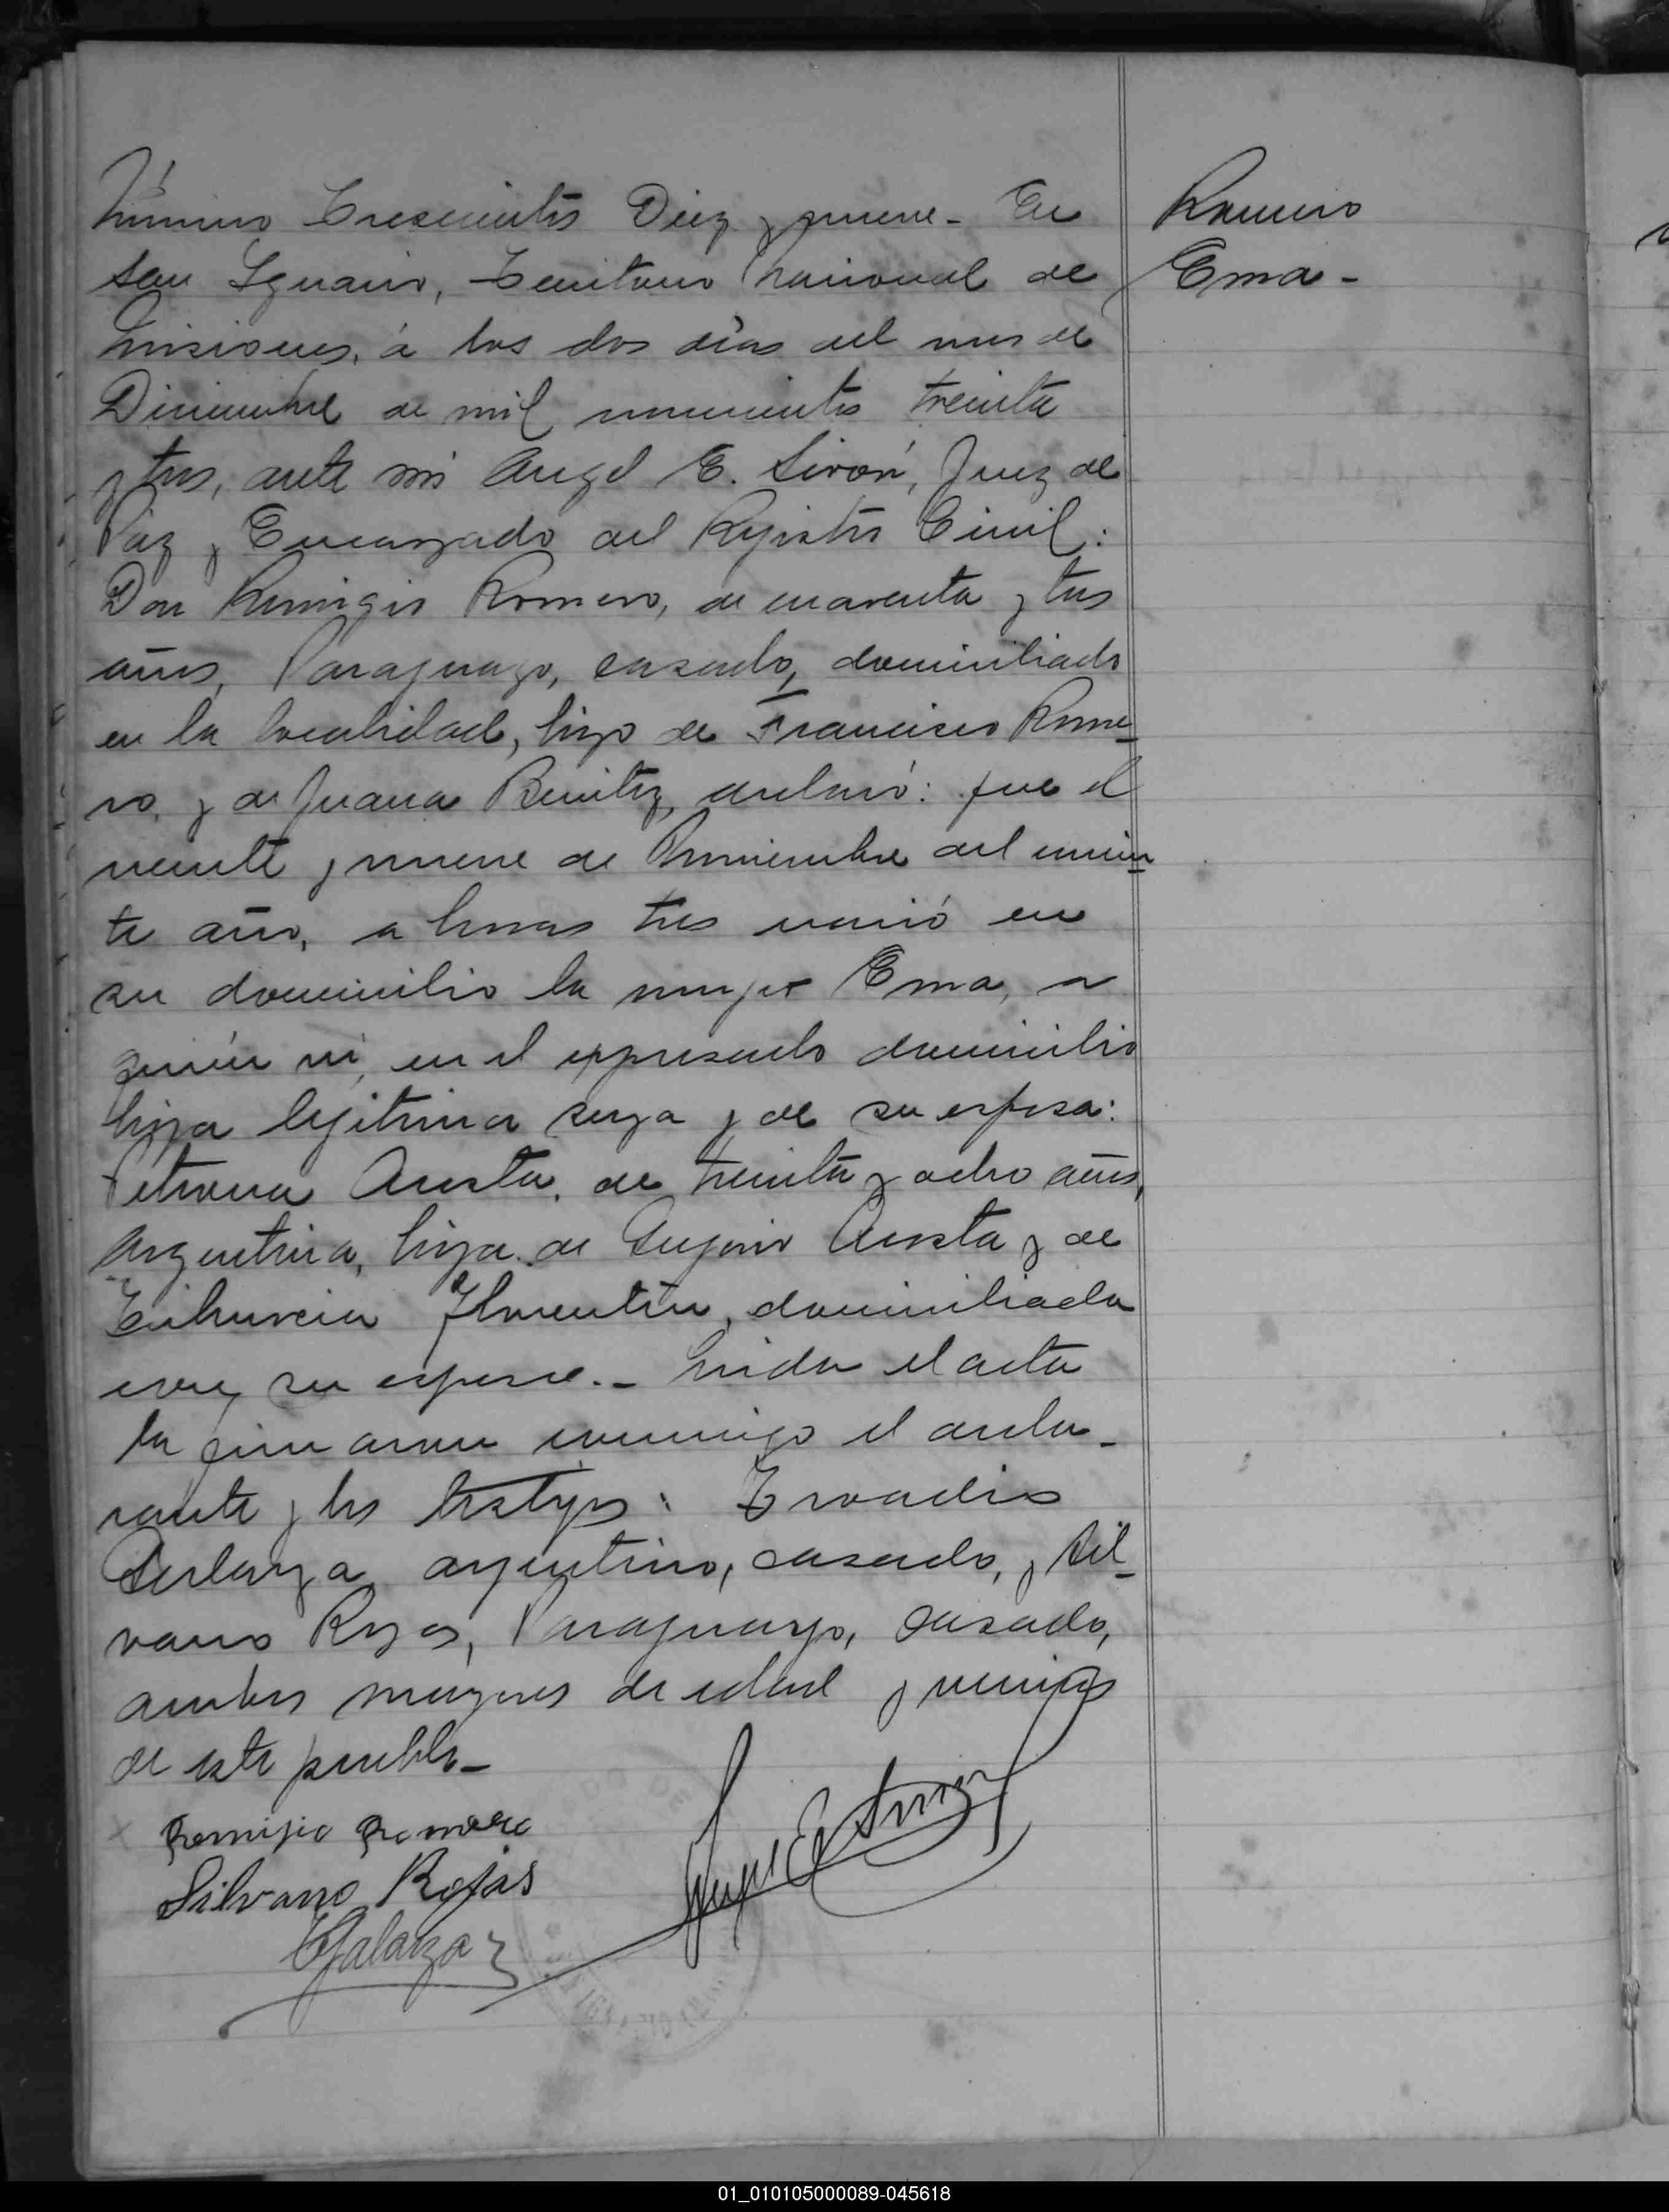 Número Trescientos Diez y nueve - En
San Ignacio, Territorio Nacional de
Misiones, á los dos días del mes de
Diciembre de mil novecientos treinta
y tres, ante mi Angel E. Sirón, Juez de
Paz y Encargado del Registro Civil:
Don Remigio Romero, de cuarenta y tres
años, Paraguayo, casado, domiciliado
en la localidad, hijo de Francisco Rome
ro, y de Juana Benitez, declaró: que el
veinte y nueve de Noviembre del corrien
te año, a horas tres nació en
su domicilio la mujer Ema, a
quién ví, en el expresado domicilio
hija legitima suya y de su esposa:
Petrona Acosta, de treinta y ocho años,
Argentina, hija de Acosta y de
Tiburcia Florentin, domiciliada
con su esposo.- Leida el acta
la firmaron conmigo el decla-
rante y los testigos: Eroadio
Galarza, argentino, casado, y Sil-
vano Rojas, Paraguayo, casado,
ambos mayores de edad y vecinos
de este pueblo-
Remigio Romero
Silvano Rojas
EGalarza
Angel E Sirón
Romero
Ema-
01_010105000089-045618